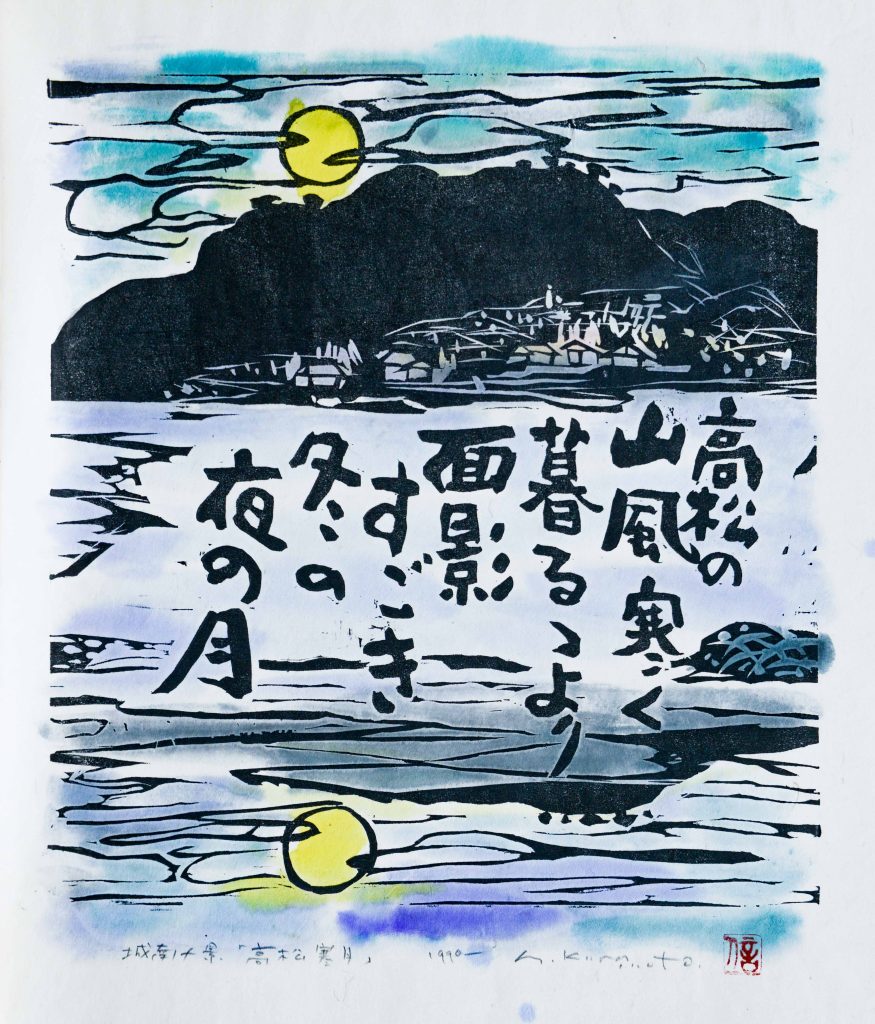 高松の
山風寒く
暮るゝより
面影
すごき
冬の
夜の月
城南十景「高松寒月」 1990 N. Kuramoto.
信